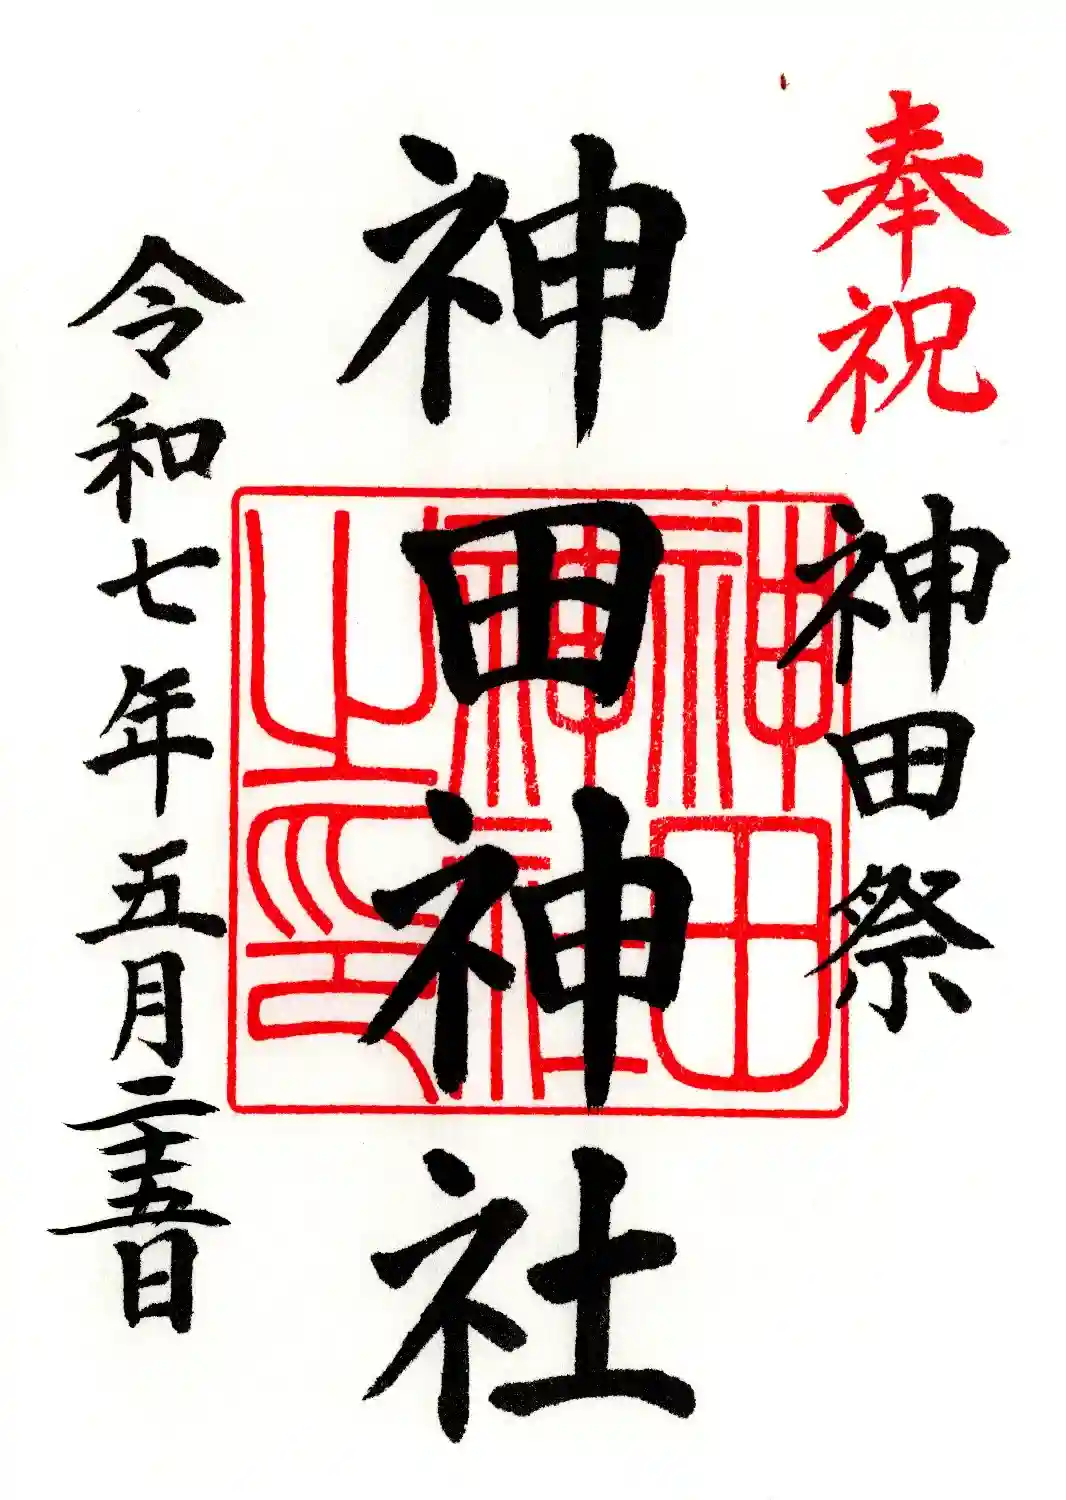 奉祝
神田祭
神田神社
神田
神社
之印
令和七年五月二十五日